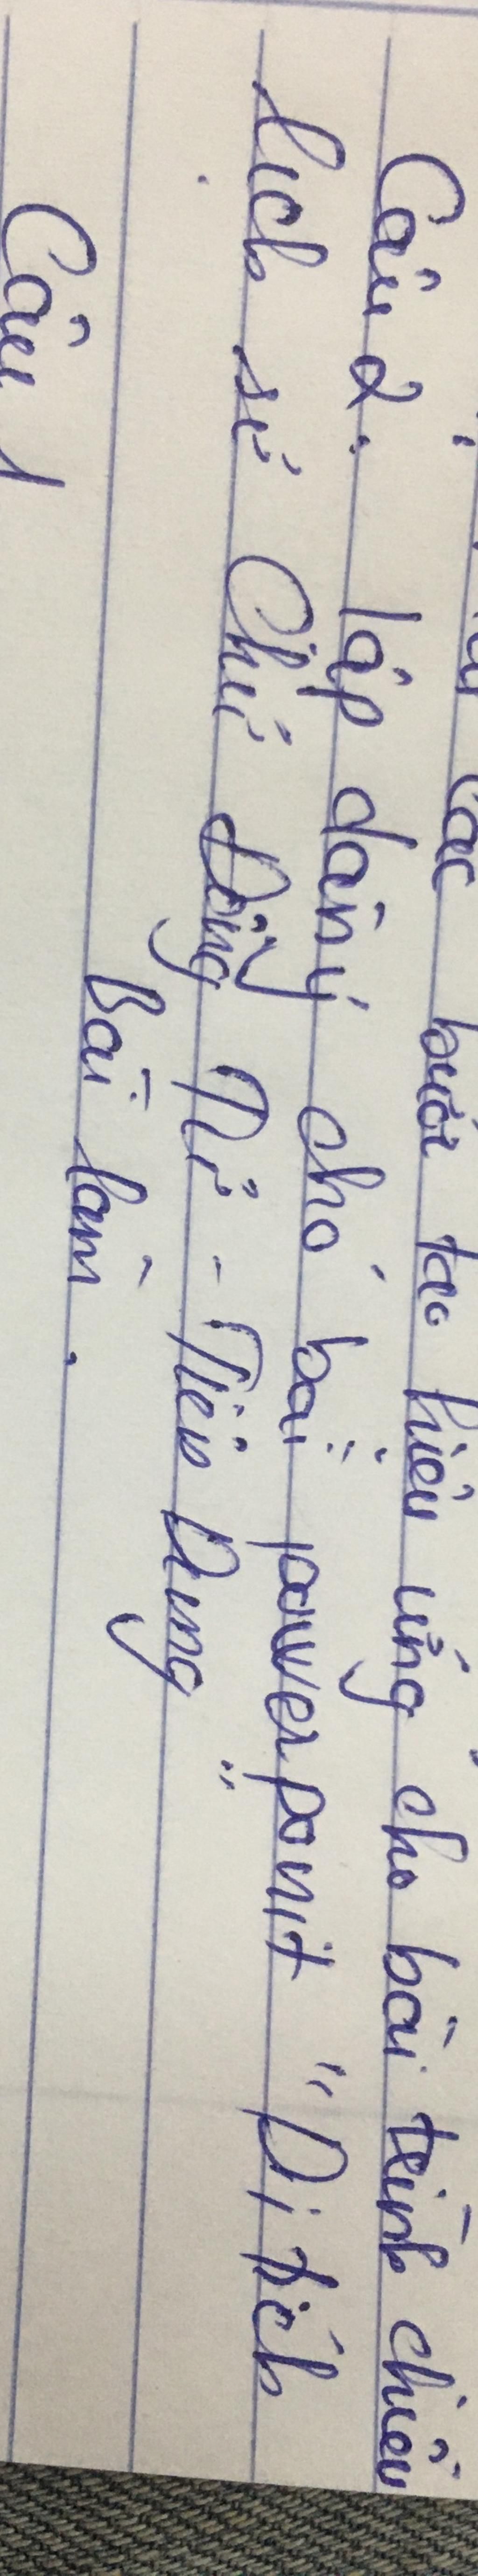 các bước tạo hiệu ứng cho bài trình chiếu
Câu 2: lập dàn ý cho bài powerponit "Di tích
lịch sử Chử Đồng Tử - Tiên Dung"
Bài làm.
Câu 1